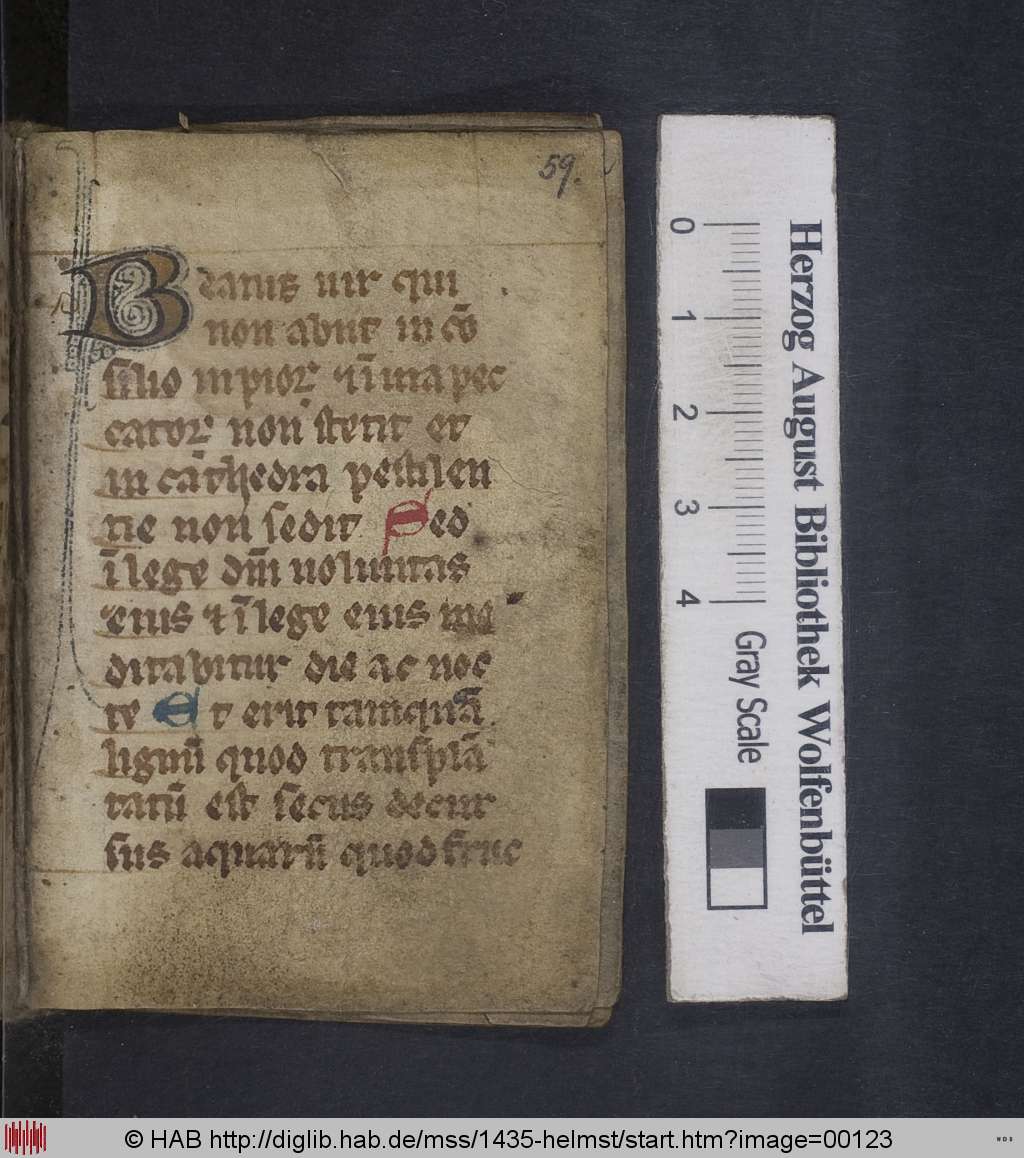 59.
Beatus uir qui
non abiit in cō
silio inpioꝝ ⁊ ī uia pec
catoꝝ non stetit et
in cathedra pestilen
tie non sedit Sed
ī lege dn̄i uoluntas
eius ⁊ ī lege eius me
ditabitur die ac noc
te Et erit tamquā
lignū quod transplā
tatū est secus decur
sus aquarū quod fruc
Herzog August Bibliothek Wolfenbüttel
0 1 2 3 4
Gray Scale
© HAB http://diglib.hab.de/mss/1435-helmst/start.htm?image=00123